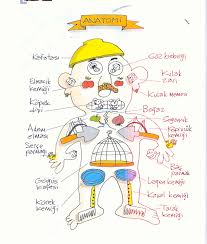 ANATOMİ
Kafatası
Elmacık
kemiği
Köpek
dişi
Adem
elması
Serçe
parmağı
Göğüs
kafesi
Kürek
kemiği
Göz bebeği
Kulak
zarı
Kulak memesi
Boğaz
Kaburga
kemiği
Baş
parmak
Leğen kemiği
Kaval kemiği
Tarak
kemiği